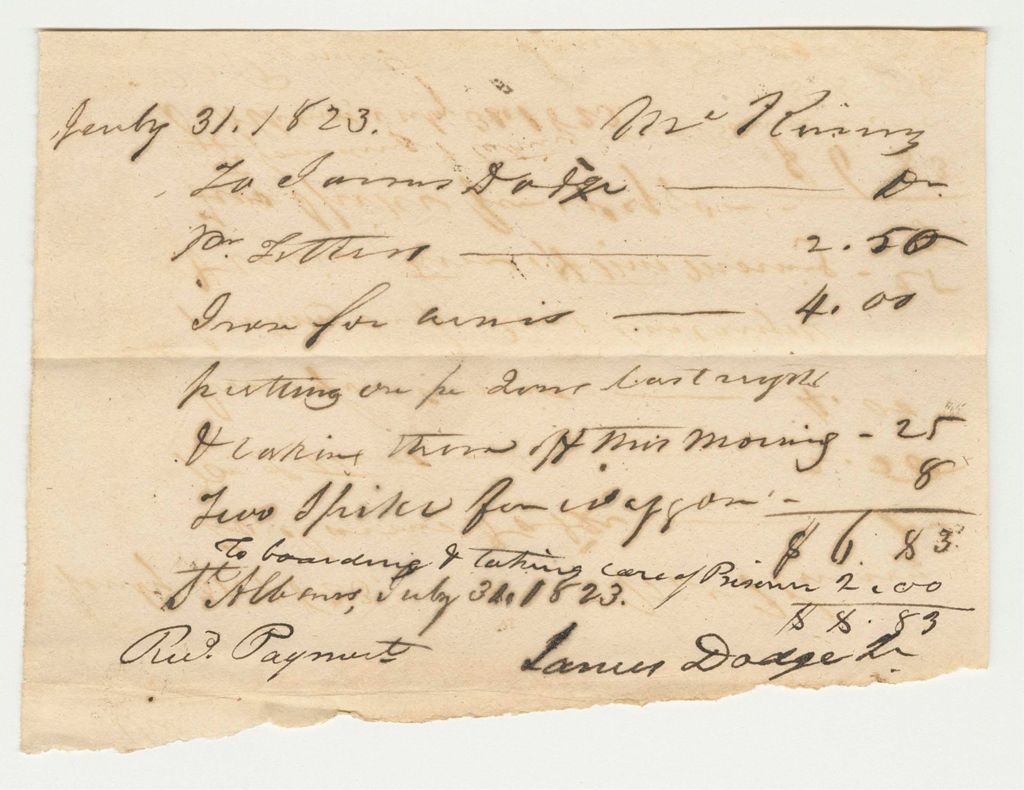 July 31. 1823. Mr Kinny
To James Dodge — Dr
Pr Fetters — 2.50
Iron for arms — 4.00
putting on pr Irons last night
& taking them off this morning - 25
Two Spikes for waggon - 8
$ 6.83
To boarding & taking care of Prisoner 2.00
St Albans, July 31. 1823.
$ 8.83
Recd. Payment James Dodge Jr